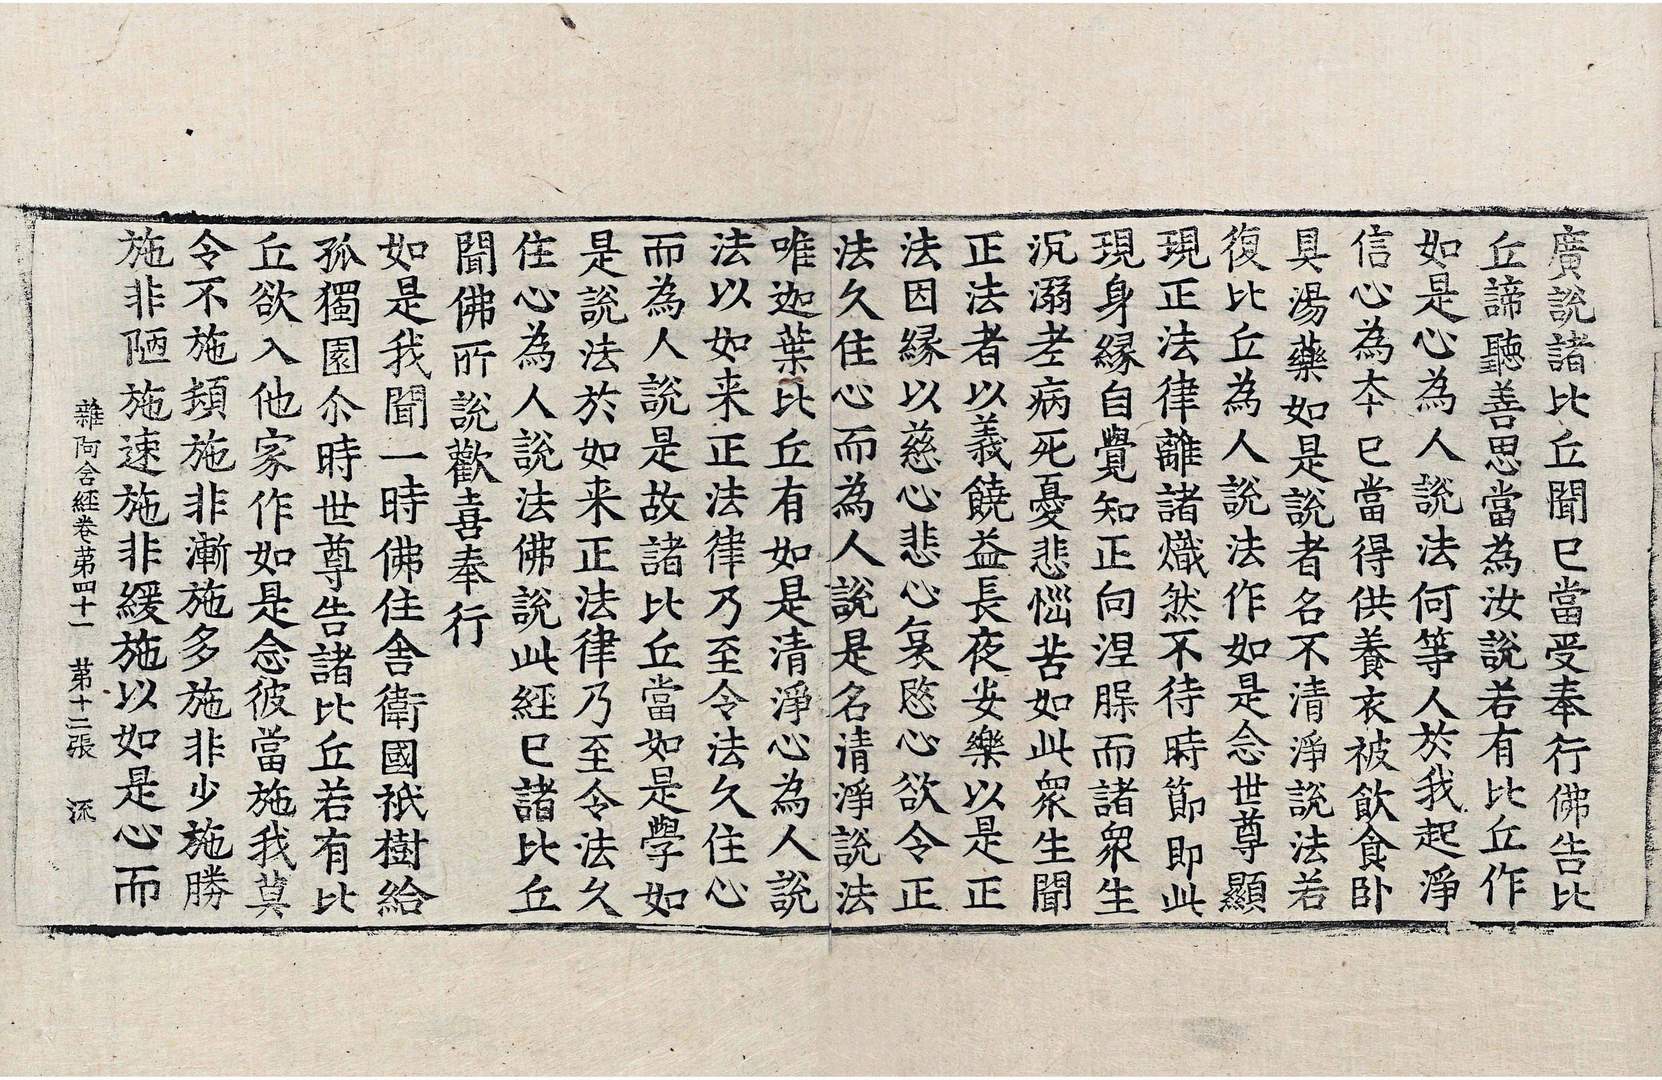 廣說諸比丘聞已當受奉行佛告比
丘諦聽善思當為汝說若有比丘作
如是心為人說法何等人於我起淨
信心為本已當得供養衣被飲食卧
具湯藥如是說者名不清淨說法若
復比丘為人說法作如是念世尊顯
現正法律離諸熾然不待時節即此
現身緣自覺知正向涅脲而諸衆生
沉溺老病死憂悲惱苦如此衆生聞
正法者以義饒益長夜安樂以是正
法因緣以慈心悲心哀愍心欲令正
法久住心而為人說是名清淨說法
唯迦葉比丘有如是清淨心為人說
法以如来正法律乃至令法久住心
而為人說是故諸比丘當如是學如
是說法於如来正法律乃至令法久
住心為人說法佛說此經已諸比丘
聞佛所說歡喜奉行
如是我聞一時佛住舍衛國祇樹給
孤獨園尒時世尊告諸比丘若有比
丘欲入他家作如是念彼當施我莫
令不施頓施非漸施多施非少施勝
施非陋施速施非緩施以如是心而
雜阿含經卷第四十一 第十二張 流